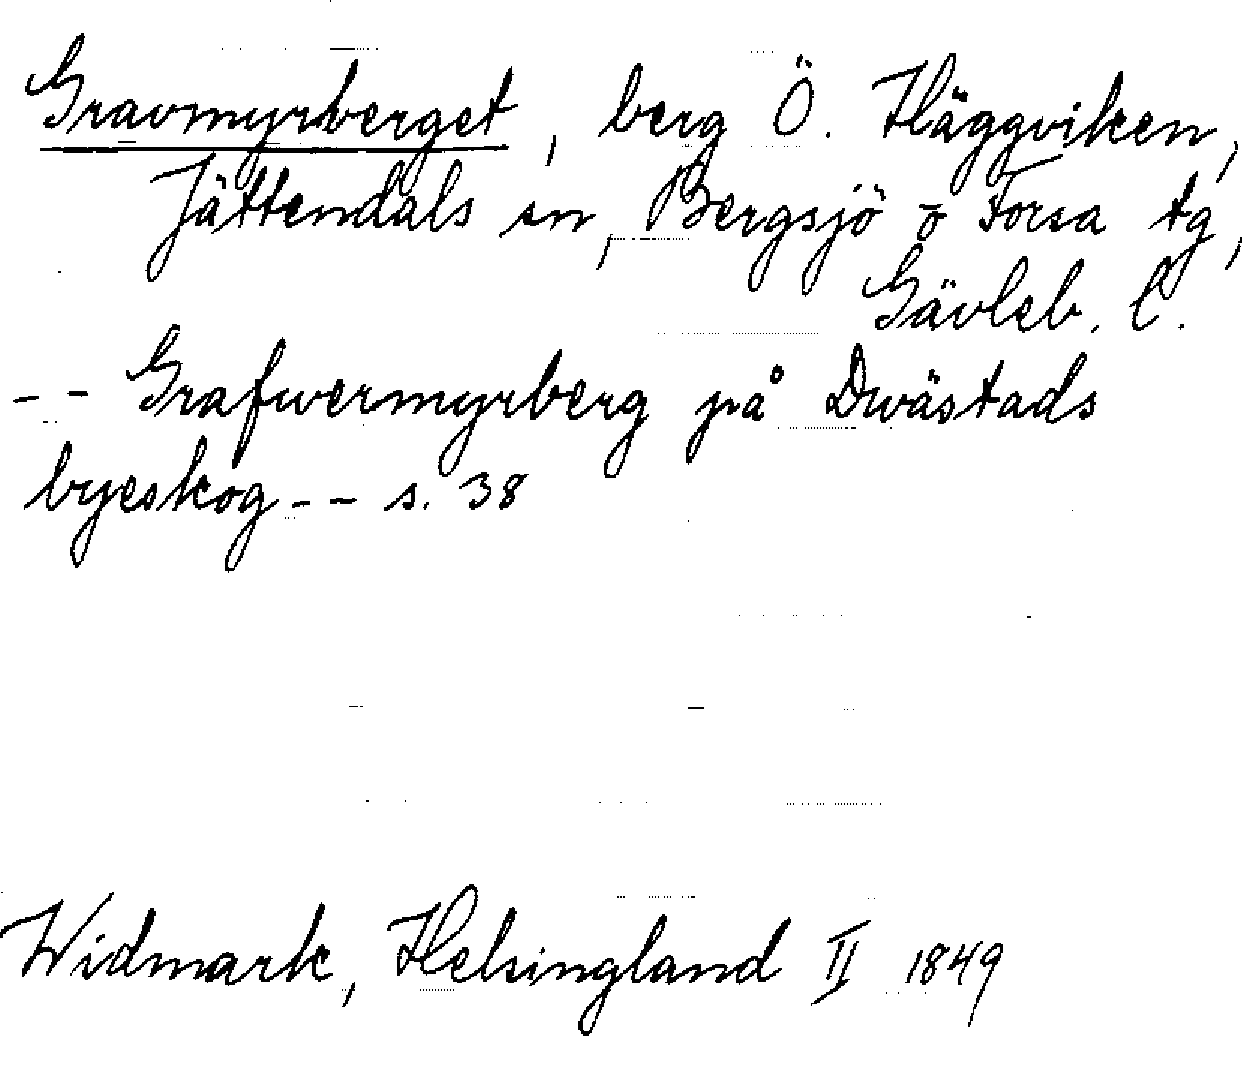 Gravmyrberget, berg Ö. Häggviken,
Jättendals sn, Bergsjö o Forsa tg,
Gävleb. l.
-- Grafwermyrberg på Dwästads
byeskog -- s. 38
Widmark, Helsingland II 1849